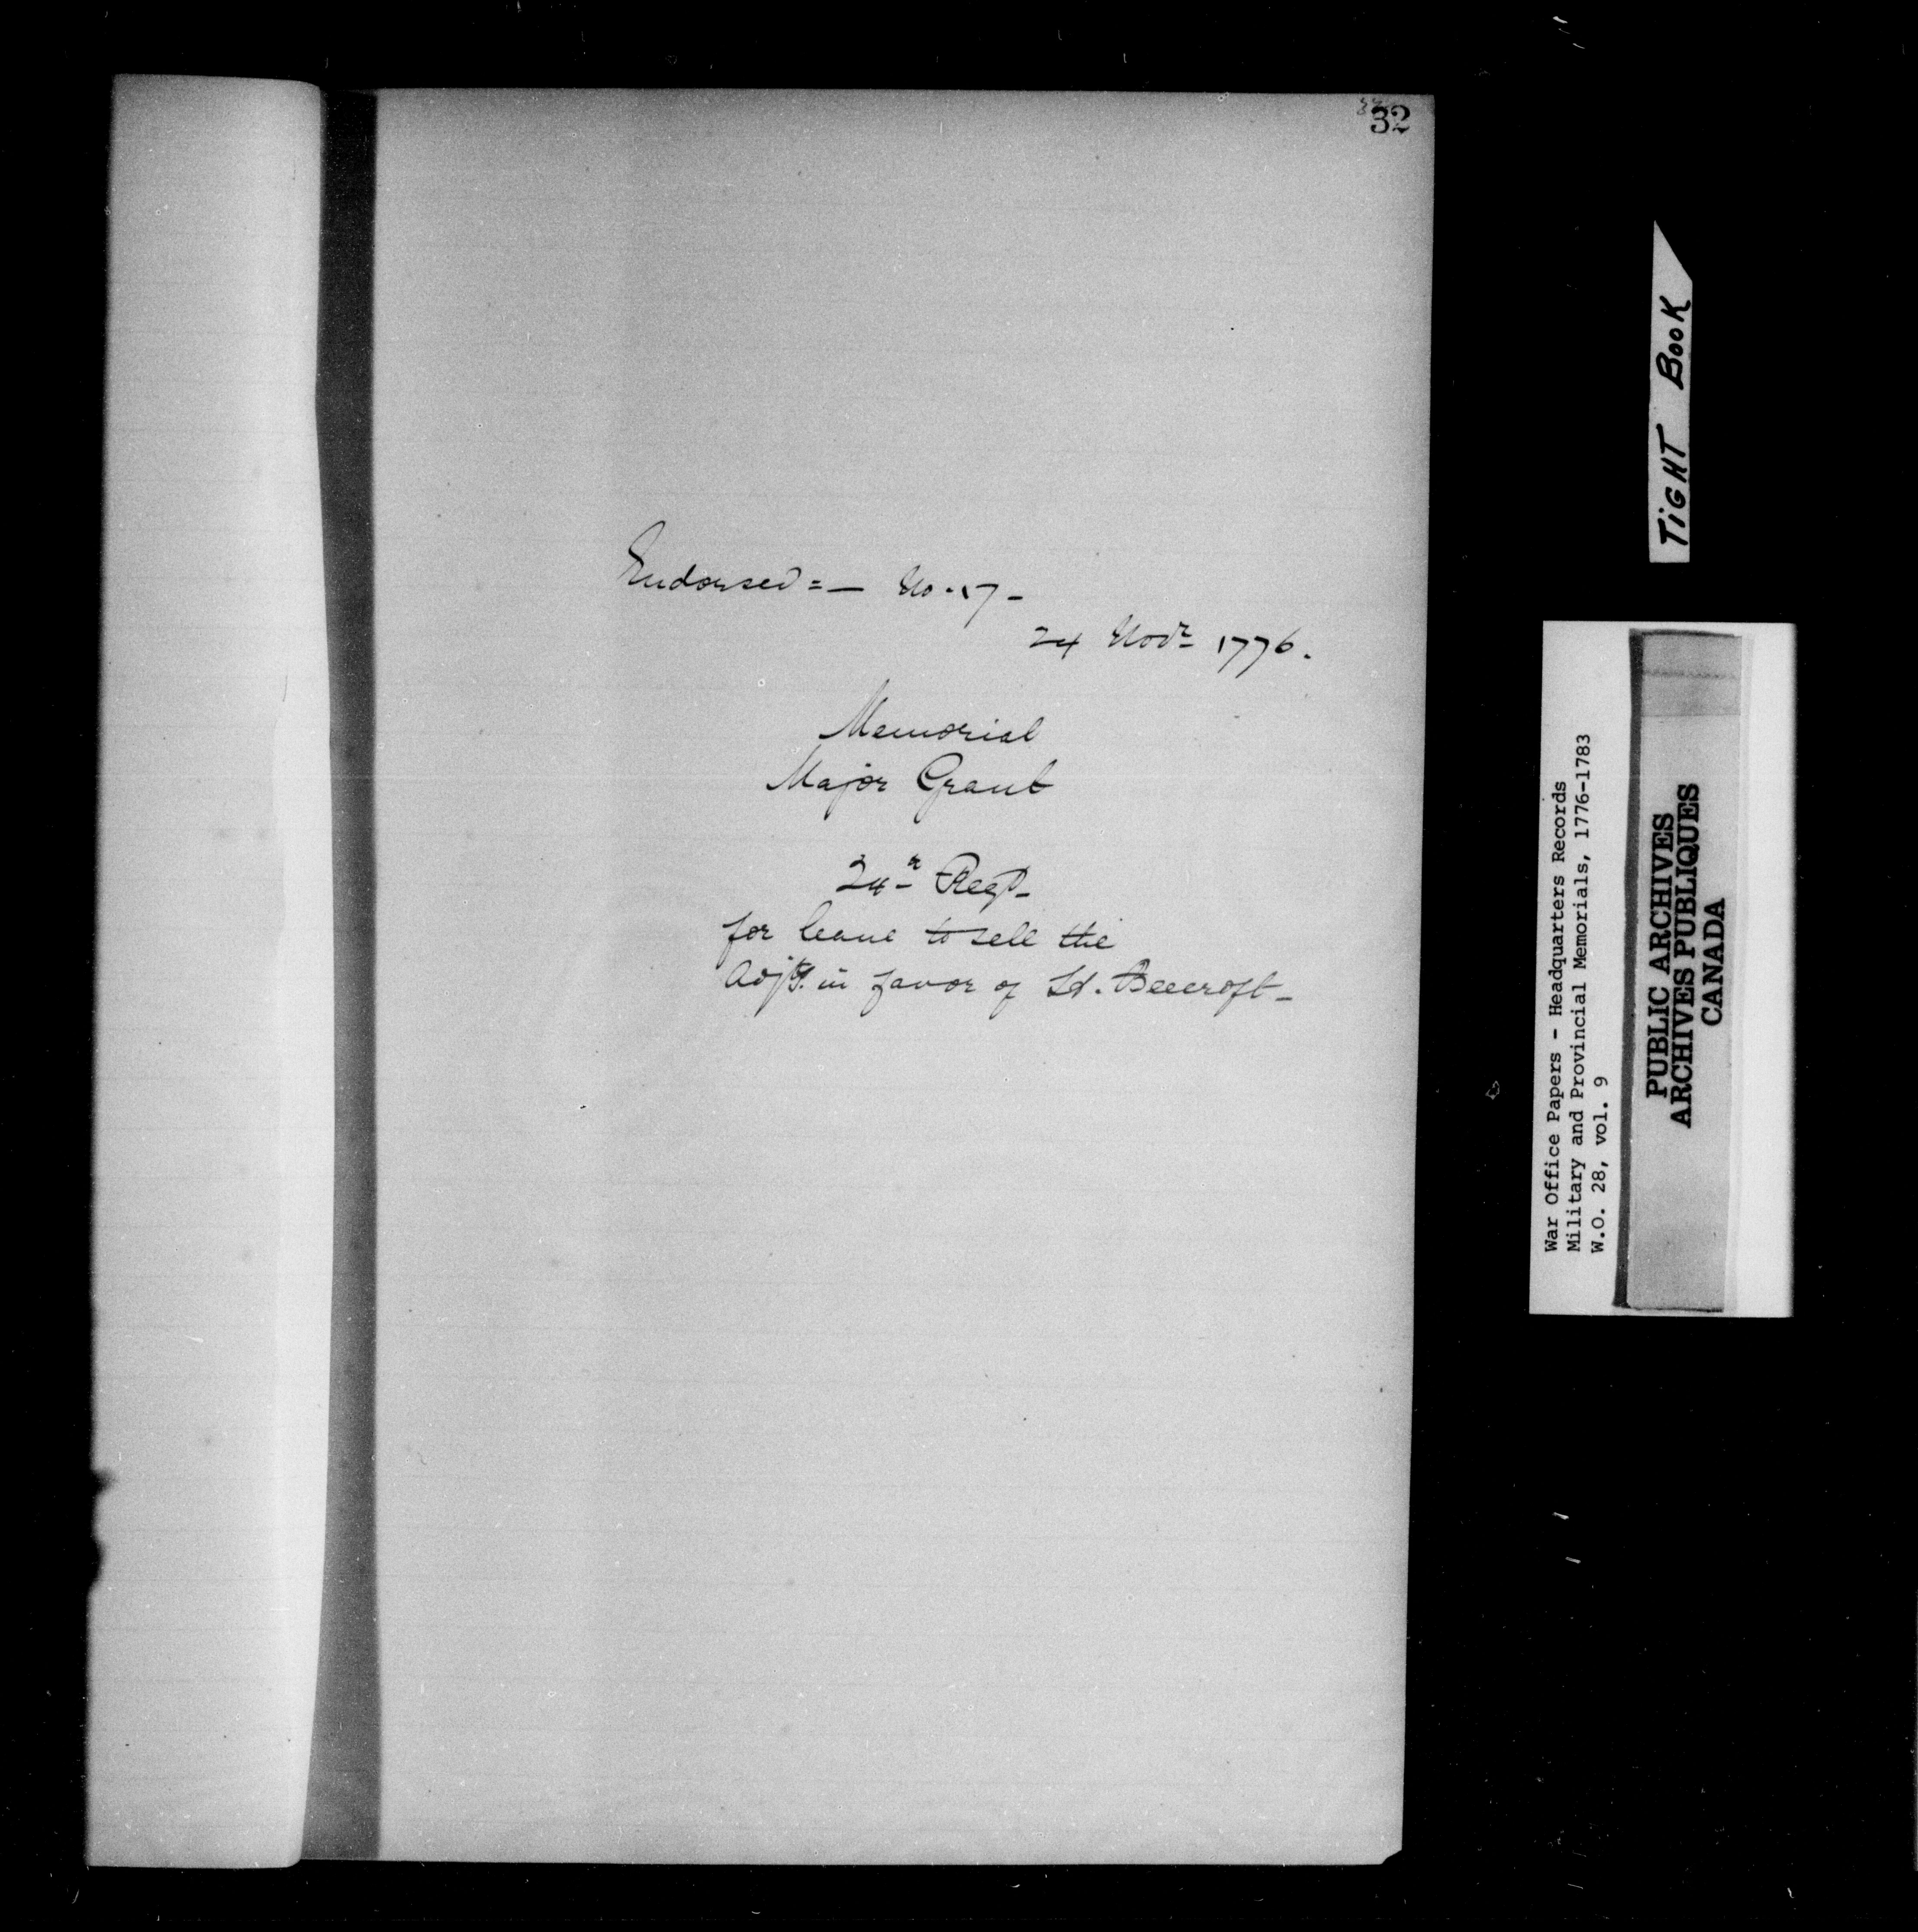 32
Endorsed = — No. 17 –
24 Novr 1776.
Memorial
Major Grant
24th Regt –
for leave to sell the
Adjcy. in favor of Lt. Beecroft –
TiGHT BOOK
War Office Papers - Headquarters Records
Military and Provincial Memorials, 1776-1783
W.O. 28, vol. 9
PUBLIC ARCHIVES
ARCHIVES PUBLIQUES
CANADA